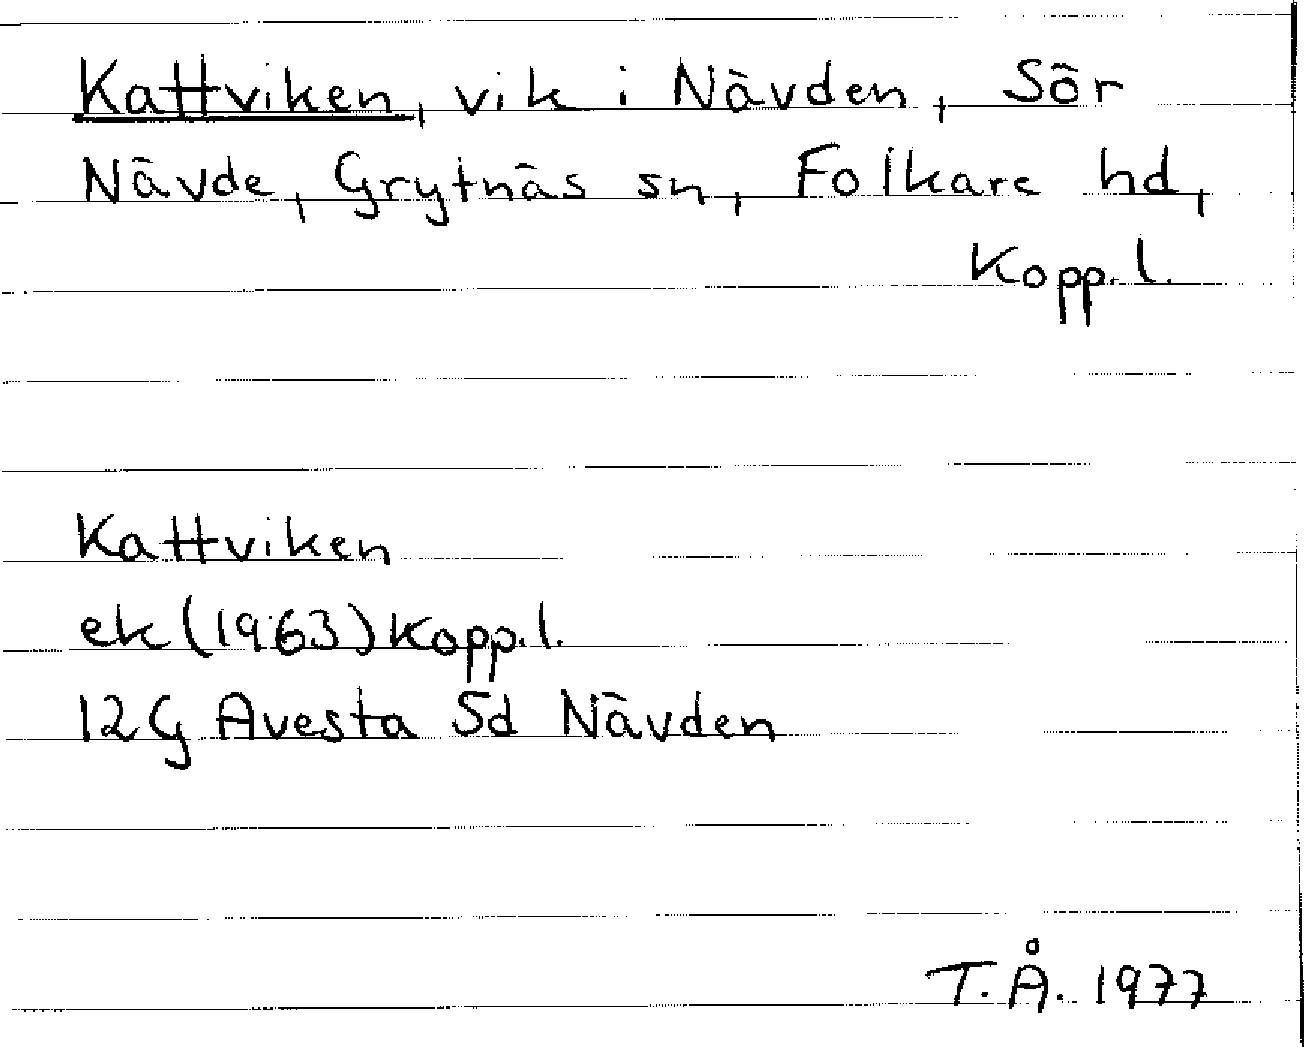 Kattviken, vik i Nävden, Sör
Nävde, Grytnäs sn, Folkare hd,
Kopp.l.
Kattviken
ek (1963) Kopp.l.
12G Avesta Sd Nävden
T.Å. 1977